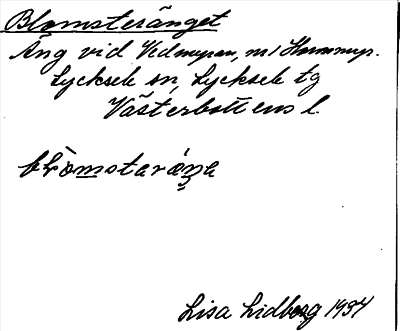 Blomsteränget
Äng vid Vedmyran, m/ Hammmyr.
Lycksele sn, Lycksele tg
Västerbottens l.
Lisa Lidberg 1934